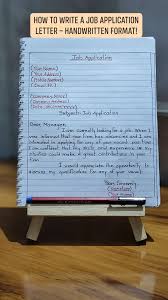 HOW TO WRITE A JOB APPLICATION
LETTER - HANDWRITTEN FORMAT!
Job Application
(Your Name)
(Your Address)
(Mobile Number)
(Email ID)
(Company Name)
(Company Address)
Subject: Job Application
Dear Manager,
I am currently looking for a job. When I
was informed that your firm has vacancies and I am
interested in applying for any of your
I am confident that my skills and experience in
could make a great contributions in your
firm.
I would appreciate the opportunity to
discuss my qualifications for any of your
Yours Sincerely,